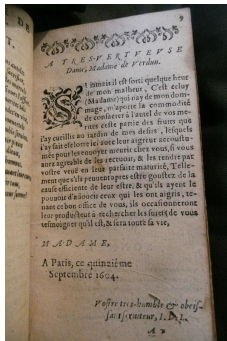 9
A TRES-VERTVEVSE
Dame, Madame de Verdun.
SI iamais il est sorti quelque heur
de mon malheur, C'est celuy
(Madame) qui nay de mon dom-
mage, m'aporte la commodité
de consacrer à l'autel de vos me-
rites ceste partie des fruits que
i'ay cueillis au iardin de mes desirs, lesquels
i'ay fait esclorre ici auec leur aigreur accoustu-
mée pour les enuoyer meurir chez vous, si vous
auez agreable de les receuoir, & les rendre par
vostre veuë en leur parfaite maturité, Telle-
ment que s'ils peuuent apres estre goustez de la
cause efficiente de leur estre, & qu'ils ayent le
pouuoir d'adoucir ceux qui les ont aigris, te-
nant ce bon office de vous, ils occasionneront
leur producteur à rechercher les sujets de vous
tesmoigner qu'il est, & sera toute sa vie,
MADAME,
A Paris, ce quinziéme
Septembre 1604.
Vostre tres-humble & obeis-
sant seruiteur,
A